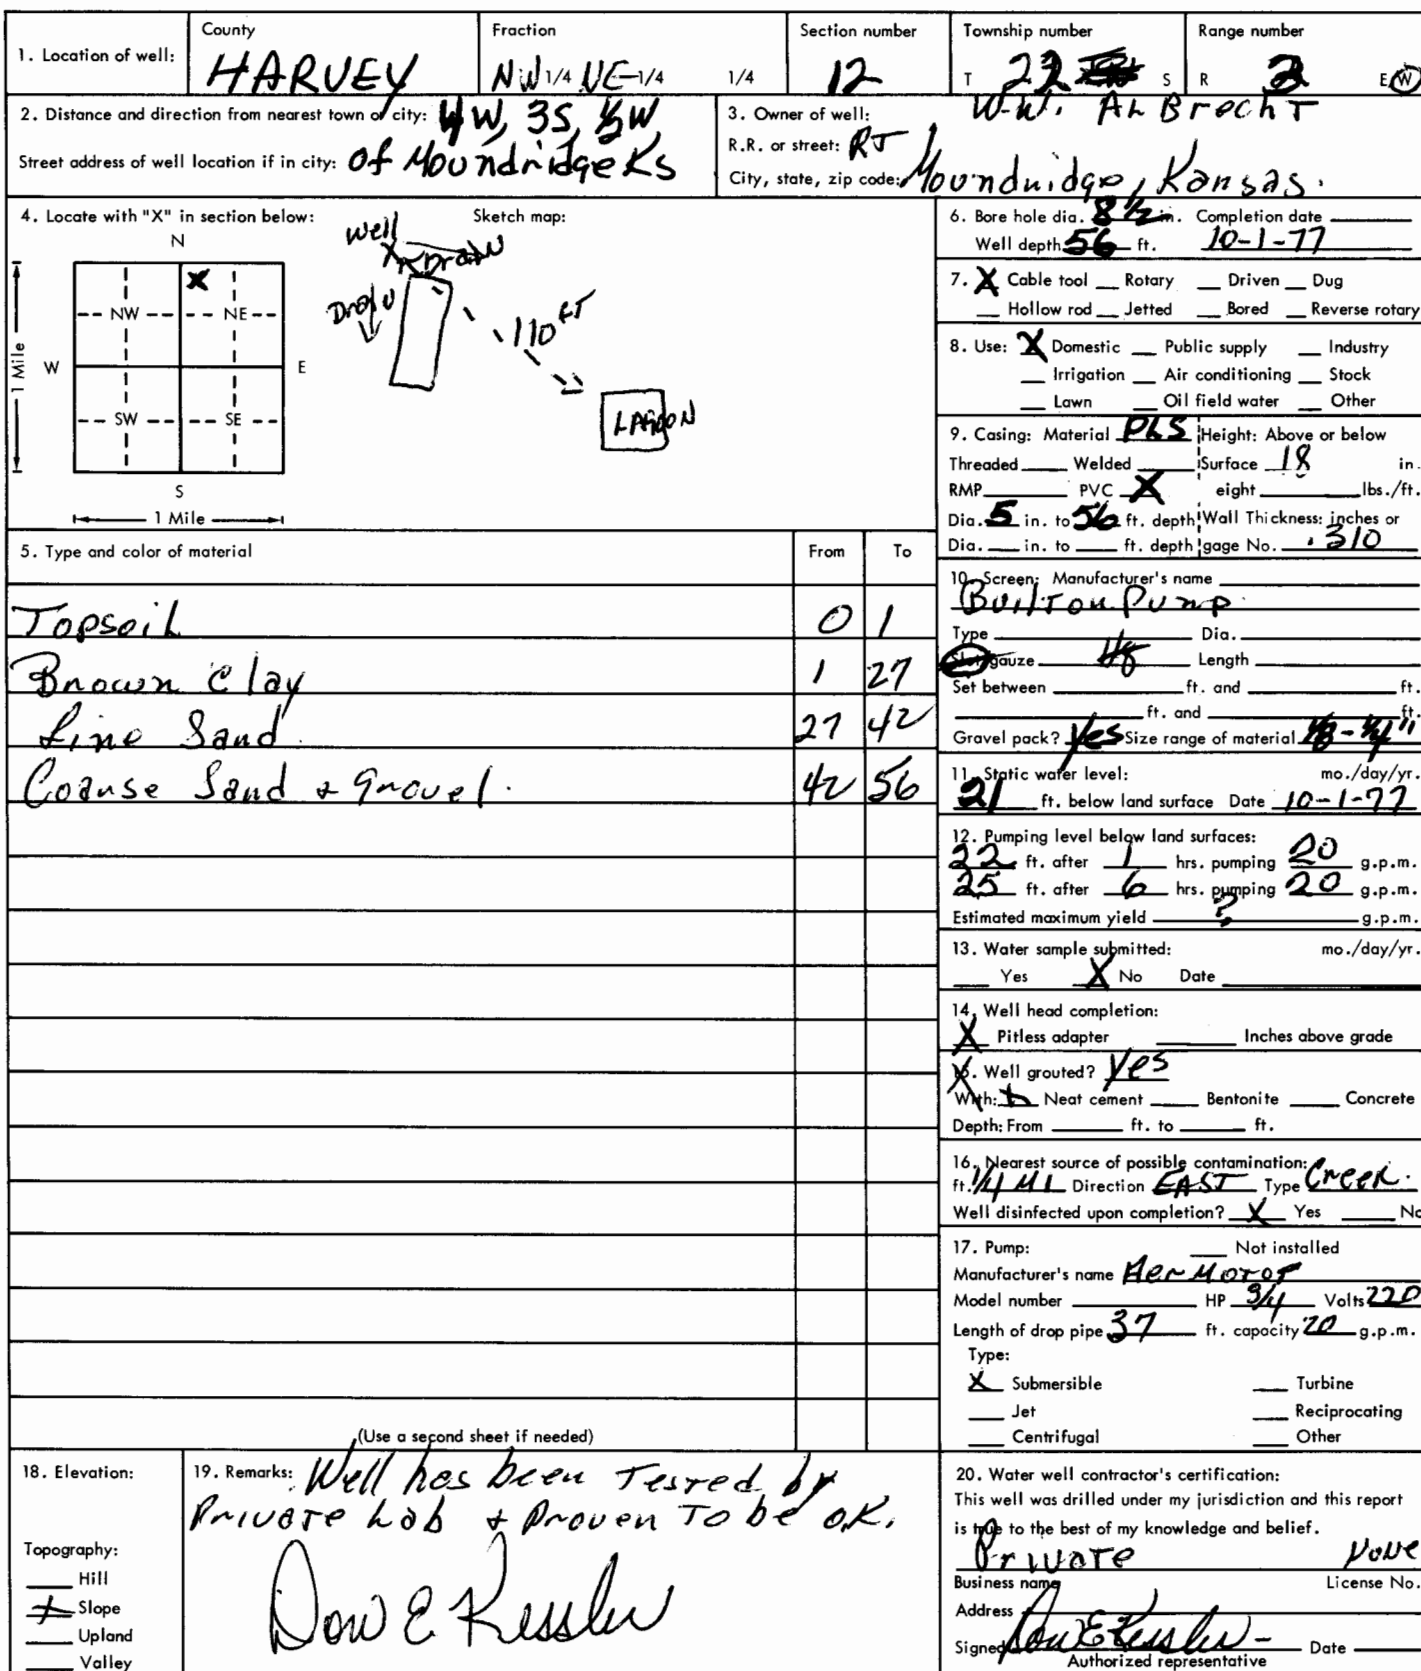 County Fraction Section number Township number Range number
1. Location of well: HARVEY NW 1/4 NE 1/4 1/4 12 T 22 S R 3 E W
2. Distance and direction from nearest town or city: 4W, 3S, ½W
Street address of well location if in city: Of Moundridge Ks
3. Owner of well: W.W. ALBrechT
R.R. or street:
City, state, zip code: Moundridge, Kansas.
4. Locate with "X" in section below: Sketch map:
N
NW NE
W E
SW SE
S
1 Mile
1 Mile
Well
X
Drain
Drain
110 FT
LAGOON
5. Type and color of material From To
Topsoil 0 1
Brown Clay 1 27
Fine Sand 27 42
Coarse Sand & Gravel. 42 56
(Use a second sheet if needed)
6. Bore hole dia. 8 ½ in. Completion date
Well depth 56 ft. 10-1-77
7. X Cable tool Rotary Driven Dug
Hollow rod Jetted Bored Reverse rotary
8. Use: X Domestic Public supply Industry
Irrigation Air conditioning Stock
Lawn Oil field water Other
9. Casing: Material PLS Height: Above or below
Threaded Welded Surface 18 in.
RMP PVC X eight lbs./ft.
Dia. 5 in. to 56 ft. depth Wall Thickness: inches or
Dia. in. to ft. depth gage No. .310
10. Screen: Manufacturer's name
Built on Pump
Type Dia.
Slot/gauze Length
Set between ft. and ft.
ft. and ft.
Gravel pack? Yes Size range of material 1/8 - 1/4"
11. Static water level: mo./day/yr.
21 ft. below land surface Date 10-1-77
12. Pumping level below land surfaces:
22 ft. after 1 hrs. pumping 20 g.p.m.
25 ft. after 6 hrs. pumping 20 g.p.m.
Estimated maximum yield ? g.p.m.
13. Water sample submitted: mo./day/yr.
Yes X No Date
14. Well head completion:
X Pitless adapter Inches above grade
15. Well grouted? Yes
With: X Neat cement Bentonite Concrete
Depth: From ft. to ft.
16. Nearest source of possible contamination:
ft. 1/4 MI Direction EAST Type Creek.
Well disinfected upon completion? X Yes No
17. Pump: Not installed
Manufacturer's name AerMotor
Model number HP 3/4 Volts 220
Length of drop pipe 37 ft. capacity 20 g.p.m.
Type:
X Submersible Turbine
Jet Reciprocating
Centrifugal Other
18. Elevation:
Topography:
Hill
X Slope
Upland
Valley
19. Remarks: Well has been Tested by
Private Lab & Proven To be O.K.
Don E Kessler
20. Water well contractor's certification:
This well was drilled under my jurisdiction and this report
is true to the best of my knowledge and belief.
Private None
Business name License No.
Address
Signed Don E Kessler Date
Authorized representative